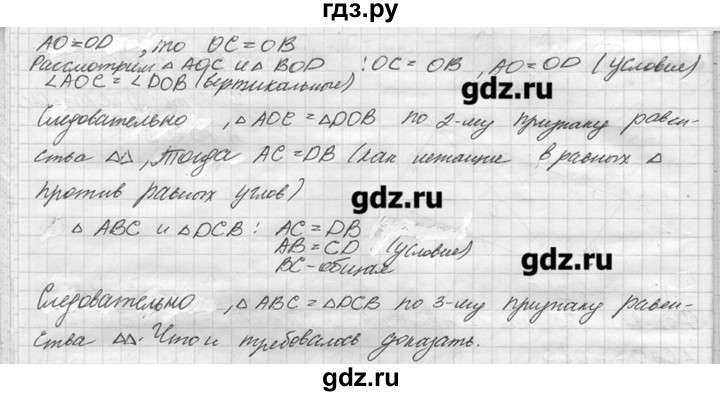 гдз.ру
AO=OD , то OC=OB
Рассмотрим △ AOC и △ BOD : OC = OB , AO=OD (условие)
∠AOC = ∠DOB (вертикальные)
gdz.ru
Следовательно , △ AOC = △DOB по 2-му признаку равен-
ства △△, Тогда AC = DB (как лежащие в равных △
против равных углов)
gdz.ru
△ ABC и △DCB : AC = DB
AB = CD (условие)
BC - общая
gdz.ru
Следовательно , △ ABC = △DCB по 3-му признаку равен-
ства △△. Что и требовалось доказать.
gdz.ru